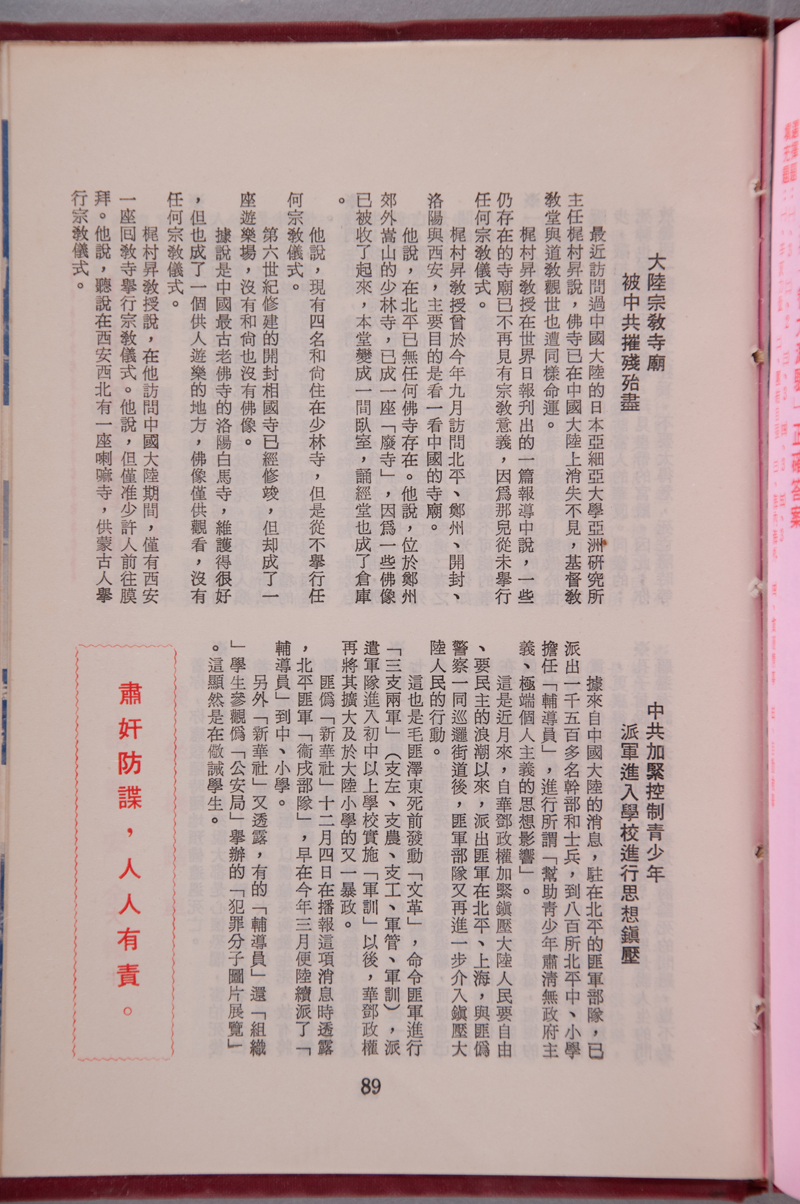 大陸宗敎寺廟
被中共摧殘殆盡
最近訪問過中國大陸的日本亞細亞大學亞洲研究所
主任梶村昇說，佛寺已在中國大陸上消失不見，基督敎
敎堂與道敎觀世也遭同樣命運。
梶村昇敎授在世界日報刋出的一篇報導中說，一些
仍存在的寺廟已不再見有宗敎意義，因爲那兒從未擧行
任何宗敎儀式。
梶村昇敎授曾於今年九月訪問北平、鄭州、開封、
洛陽與西安，主要目的是看一看中國的寺廟。
他說，在北平已無任何佛寺存在。他說，位於鄭州
郊外嵩山的少林寺，已成一座「廢寺」，因爲一些佛像
已被收了起來，本堂變成一間臥室，誦經堂也成了倉庫
。
他說，現有四名和尙住在少林寺，但是從不擧行任
何宗敎儀式。
第六世紀修建的開封相國寺已經修竣，但却成了一
座遊樂場，沒有和尙也沒有佛像。
據說是中國最古老佛寺的洛陽白馬寺，維護得很好
，但也成了一個供人遊樂的地方，佛像僅供觀看，沒有
任何宗敎儀式。
梶村昇敎授說，在他訪問中國大陸期間，僅有西安
一座回敎寺擧行宗敎儀式。他說，但僅准少許人前往膜
拜。他說，聽說在西安西北有一座喇嘛寺，供蒙古人擧
行宗敎儀式。
中共加緊控制靑少年
派軍進入學校進行思想鎭壓
據來自中國大陸的消息，駐在北平的匪軍部隊，已
派出一千五百多名幹部和士兵，到八百所北平中、小學
擔任「輔導員」，進行所謂「幫助靑少年肅淸無政府主
義、極端個人主義的思想影響」。
這是近月來，自華鄧政權加緊鎭壓大陸人民要自由
、要民主的浪潮以來，派出匪軍在北平、上海，與匪僞
警察一同巡邏街道後，匪軍部隊又再進一步介入鎭壓大
陸人民的行動。
這也是毛匪澤東死前發動「文革」，命令匪軍進行
「三支兩軍」（支左、支農、支工、軍管、軍訓），派
遣軍隊進入初中以上學校實施「軍訓」以後，華鄧政權
再將其擴大及於大陸小學的又一暴政。
匪僞「新華社」十二月四日在播報這項消息時透露
，北平匪軍「衞戍部隊」，早在今年三月便陸續派了「
輔導員」到中、小學。
另外「新華社」又透露，有的「輔導員」還「組織
」學生參觀僞「公安局」擧辦的「犯罪分子圖片展覽」
。這顯然是在儆誡學生。
肅奸防諜，人人有責。
89